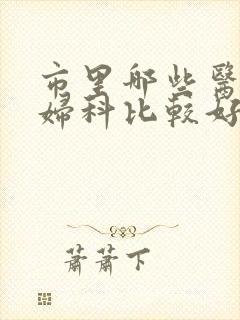 市里哪些醫
婦科比較好
蕭蕭下